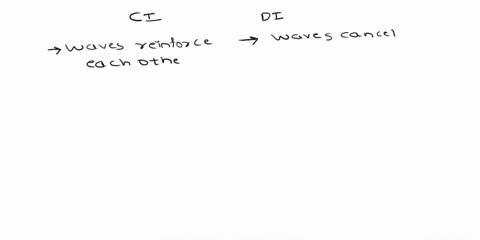 CI DI
→ waves reinforce → waves cancel
each othe